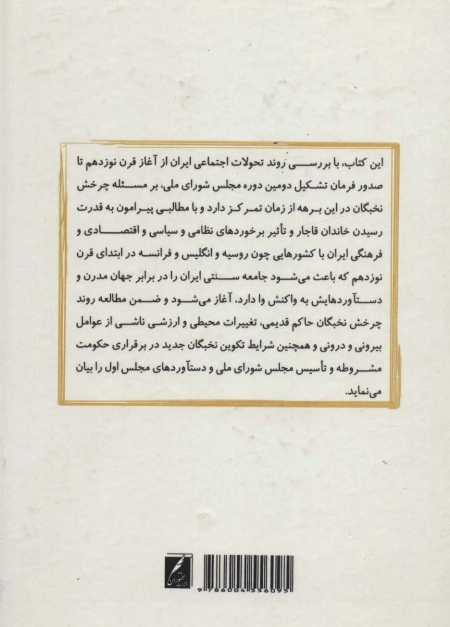 این کتاب، با بررسی روند تحولات اجتماعی ایران از آغاز قرن نوزدهم تا
صدور فرمان تشکیل دومین دوره مجلس شورای ملی، بر مسئله چرخش
نخبگان در این برهه از زمان تمرکز دارد و با مطالبی پیرامون به قدرت
رسیدن خاندان قاجار و تأثیر برخوردهای نظامی و سیاسی و اقتصادی و
فرهنگی ایران با کشورهایی چون روسیه و انگلیس و فرانسه در ابتدای قرن
نوزدهم که باعث می‌شود جامعه سنتی ایران را در برابر جهان مدرن و
دستآوردهایش به واکنش وا دارد، آغاز می‌شود و ضمن مطالعه روند
چرخش نخبگان حاکم قدیمی، تغییرات محیطی و ارزشی ناشی از عوامل
بیرونی و درونی و همچنین شرایط تکوین نخبگان جدید در برقراری حکومت
مشروطه و تأسیس مجلس شورای ملی و دستآوردهای مجلس اول را بیان
می‌نماید.